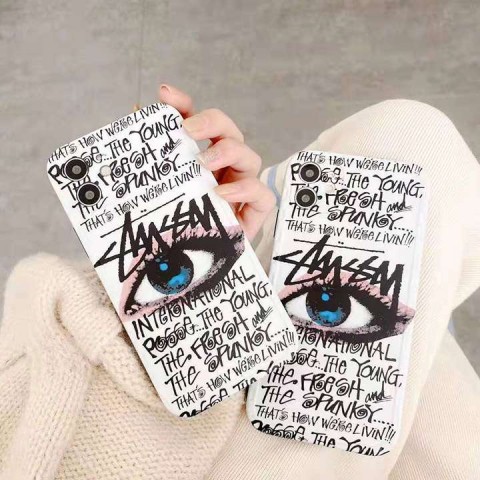 THAT'S HOW WE'RE LIVIN'!!!
POSSE...THE YOUNG,
THE FRESH and
THE SPUNKY....
THAT'S HOW WE'RE LIVIN'!!!
STÜSSY
INTERNATIONAL
POSSE...THE YOUNG,
THE FRESH and
THE SPUNKY....
THAT'S HOW WE'RE LIVIN'!!!
POSSE...THE YOUNG,
THAT'S HOW WE'RE LIVIN'!!!
POSSE...THE YOUNG,
THE FRESH and
THE SPUNKY....
THAT'S HOW WE'RE LIVIN'!!!
STÜSSY
INTERNATIONAL
POSSE...THE YOUNG,
THE FRESH and
THE SPUNKY....
THAT'S HOW WE'RE LIVIN'!!!
POSSE...THE YOUNG,